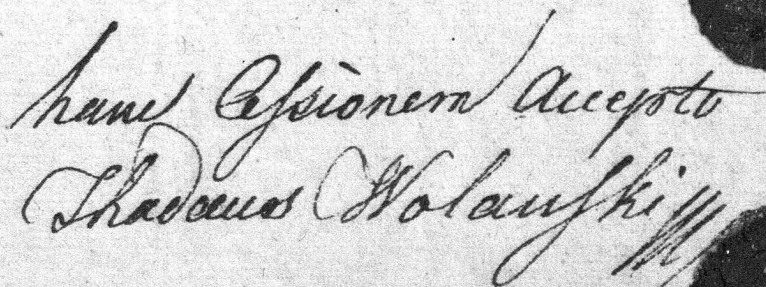 hanc Cessionem Accepto
Thadaeus Wolanski